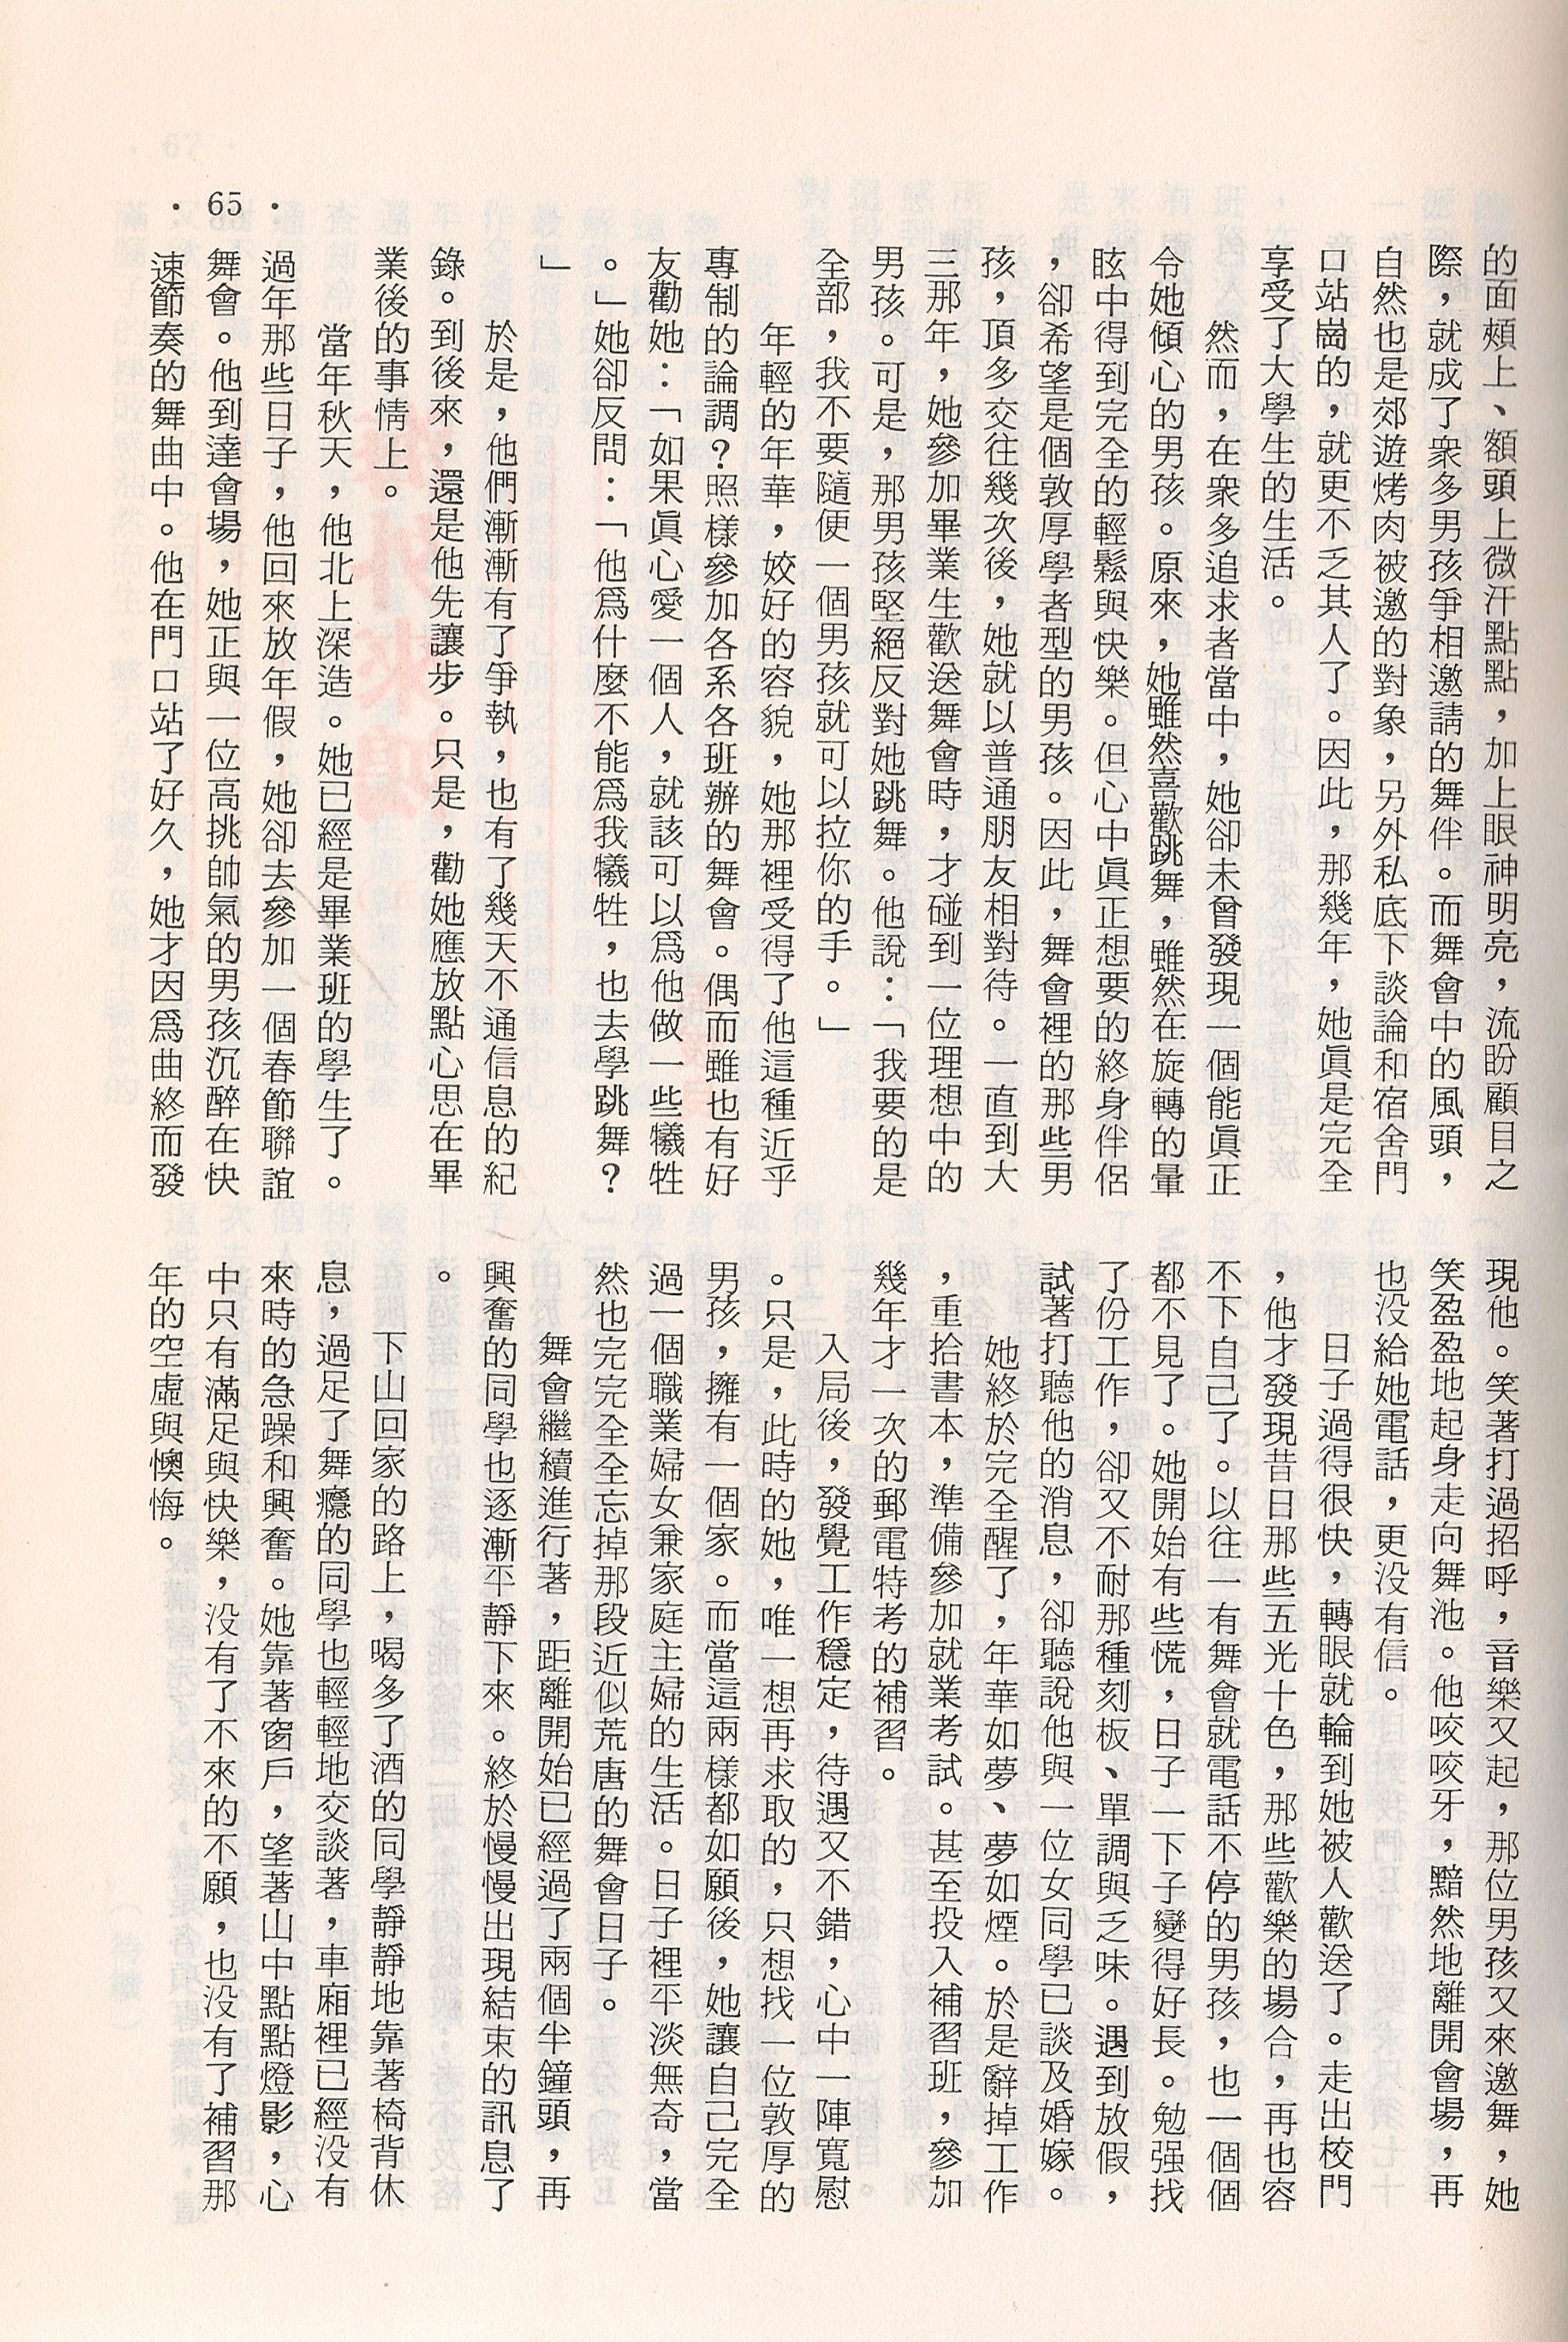 ・65・
的面頰上、額頭上微汗點點，加上眼神明亮，流盼顧目之
際，就成了衆多男孩爭相邀請的舞伴。而舞會中的風頭，
自然也是郊遊烤肉被邀的對象，另外私底下談論和宿舍門
口站崗的，就更不乏其人了。因此，那幾年，她眞是完全
享受了大學生的生活。
然而，在衆多追求者當中，她卻未曾發現一個能眞正
令她傾心的男孩。原來，她雖然喜歡跳舞，雖然在旋轉的暈
眩中得到完全的輕鬆與快樂。但心中眞正想要的終身伴侶
，卻希望是個敦厚學者型的男孩。因此，舞會裡的那些男
孩，頂多交往幾次後，她就以普通朋友相對待。一直到大
三那年，她參加畢業生歡送舞會時，才碰到一位理想中的
男孩。可是，那男孩堅絕反對她跳舞。他說：「我要的是
全部，我不要隨便一個男孩就可以拉你的手。」
年輕的年華，姣好的容貌，她那裡受得了他這種近乎
專制的論調？照樣參加各系各班辦的舞會。偶而雖也有好
友勸她：「如果眞心愛一個人，就該可以爲他做一些犧牲
。」她卻反問：「他爲什麼不能爲我犧牲，也去學跳舞？
」
於是，他們漸漸有了爭執，也有了幾天不通信息的紀
錄。到後來，還是他先讓步。只是，勸她應放點心思在畢
業後的事情上。
當年秋天，他北上深造。她已經是畢業班的學生了。
過年那些日子，他回來放年假，她卻去參加一個春節聯誼
舞會。他到達會場，她正與一位高挑帥氣的男孩沉醉在快
速節奏的舞曲中。他在門口站了好久，她才因爲曲終而發
現他。笑著打過招呼，音樂又起，那位男孩又來邀舞，她
笑盈盈地起身走向舞池。他咬咬牙，黯然地離開會場，再
也没給她電話，更没有信。
日子過得很快，轉眼就輪到她被人歡送了。走出校門
，他才發現昔日那些五光十色，那些歡樂的場合，再也容
不下自己了。以往一有舞會就電話不停的男孩，也一個個
都不見了。她開始有些慌，日子一下子變得好長。勉强找
了份工作，卻又不耐那種刻板、單調與乏味。遇到放假，
試著打聽他的消息，卻聽說他與一位女同學已談及婚嫁。
她終於完全醒了，年華如夢、夢如煙。於是辭掉工作
，重拾書本，準備參加就業考試。甚至投入補習班，參加
幾年才一次的郵電特考的補習。
入局後，發覺工作穩定，待遇又不錯，心中一陣寬慰
。只是，此時的她，唯一想再求取的，只想找一位敦厚的
男孩，擁有一個家。而當這兩樣都如願後，她讓自己完全
過一個職業婦女兼家庭主婦的生活。日子裡平淡無奇，當
然也完完全全忘掉那段近似荒唐的舞會日子。
舞會繼續進行著，距離開始已經過了兩個半鐘頭，再
興奮的同學也逐漸平靜下來。終於慢慢出現結束的訊息了
。
下山回家的路上，喝多了酒的同學靜靜地靠著椅背休
息，過足了舞癮的同學也輕輕地交談著，車廂裡已經没有
來時的急躁和興奮。她靠著窗戶，望著山中點點燈影，心
中只有滿足與快樂，没有了不來的不願，也没有了補習那
年的空虛與懊悔。